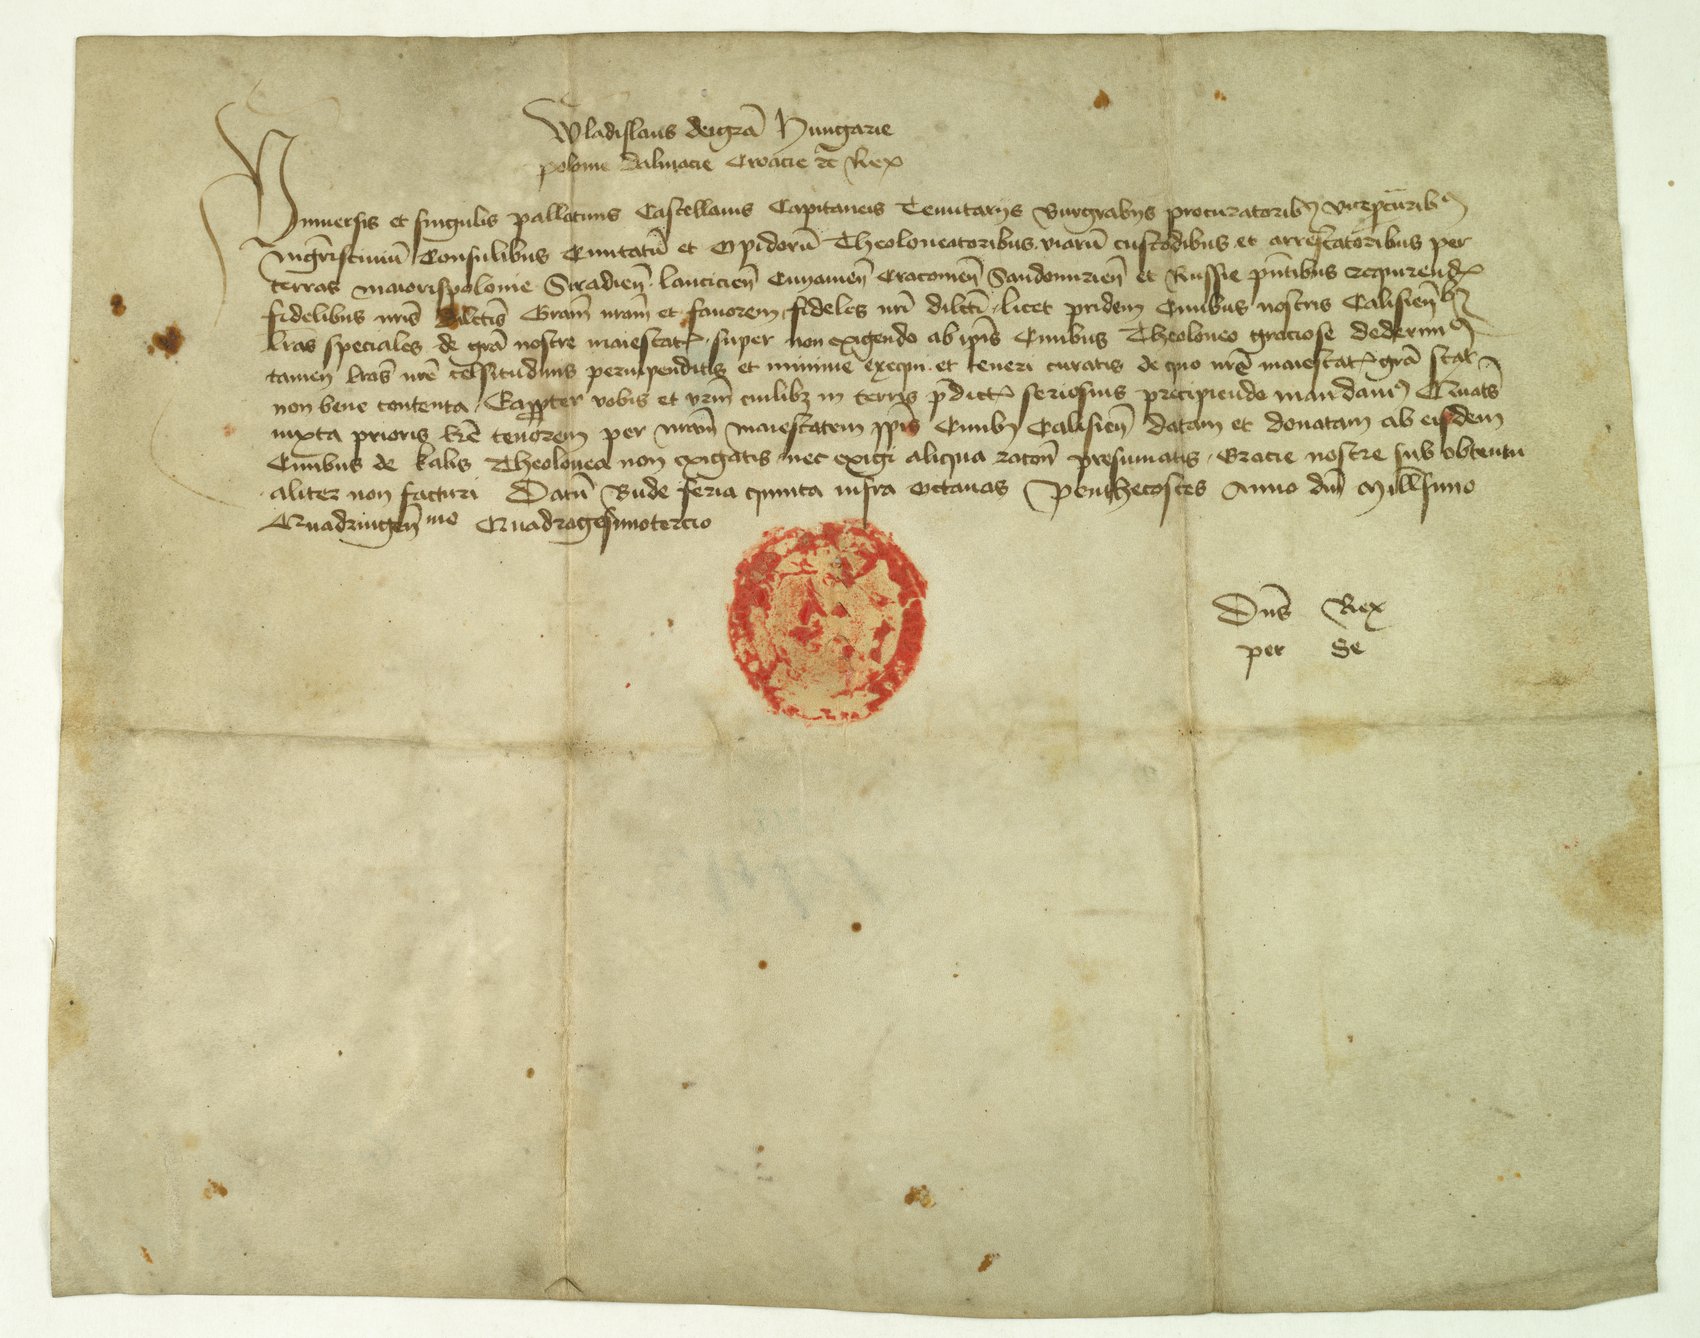 Wladislaus deigrã Hungarie
polonie dalmacie Croacie etc̃ Rex
Vniuersis et singulis pallatinis Castellanis Capitaneis Tenutarijs Burgrabijs procuratoribus viceprocuratoribus
mgr̃iscimiũ Consulibus Ciuitatũ et Opidorũ Theoloneatoribus viarũ custodibus et arrestatoribus per
terras maiorispolonie Siradien̄ lancicien̄ Cuyauien̄ Cracouien̄ Sandomirien̄ et Russie pñtibus requirend
fidelibus nr̃is dilctis Gram̃ nram̃ et fauorem fideles nri dilcti licet pridem Ciuibus nostris Calisien̄
lras speciales de grã nostre maiestat super non exigendo ab ip̃is Ciuibus Theoloneo graciose dederimus
tamen lras̃ nrẽ celsitudinis perinpenditis et minime exequi et teneri curatis de quo nrẽ maiestat grã stat
non bene contenta Eapropter vobis et vrm̃ cuilibz in terris p̃dict seriosius precipiendo mandamus Quatẽs
iuxta prioris lrẽ tenorem per nram̃ maiestatem ip̃is Ciuibus Calisien̄ datam et donatam ab eisdem
Ciuibus de kalis Theolonea non exigatis nec exigi aliqua racõn presumatis Gracie nostre sub obtentu
aliter non facturi Datũ Bude feria quinta infra octauas Penthecostes Anno dñi Millesimo
Quadringen̄mo Quadragesimotercio
Dñs Rex
per Se